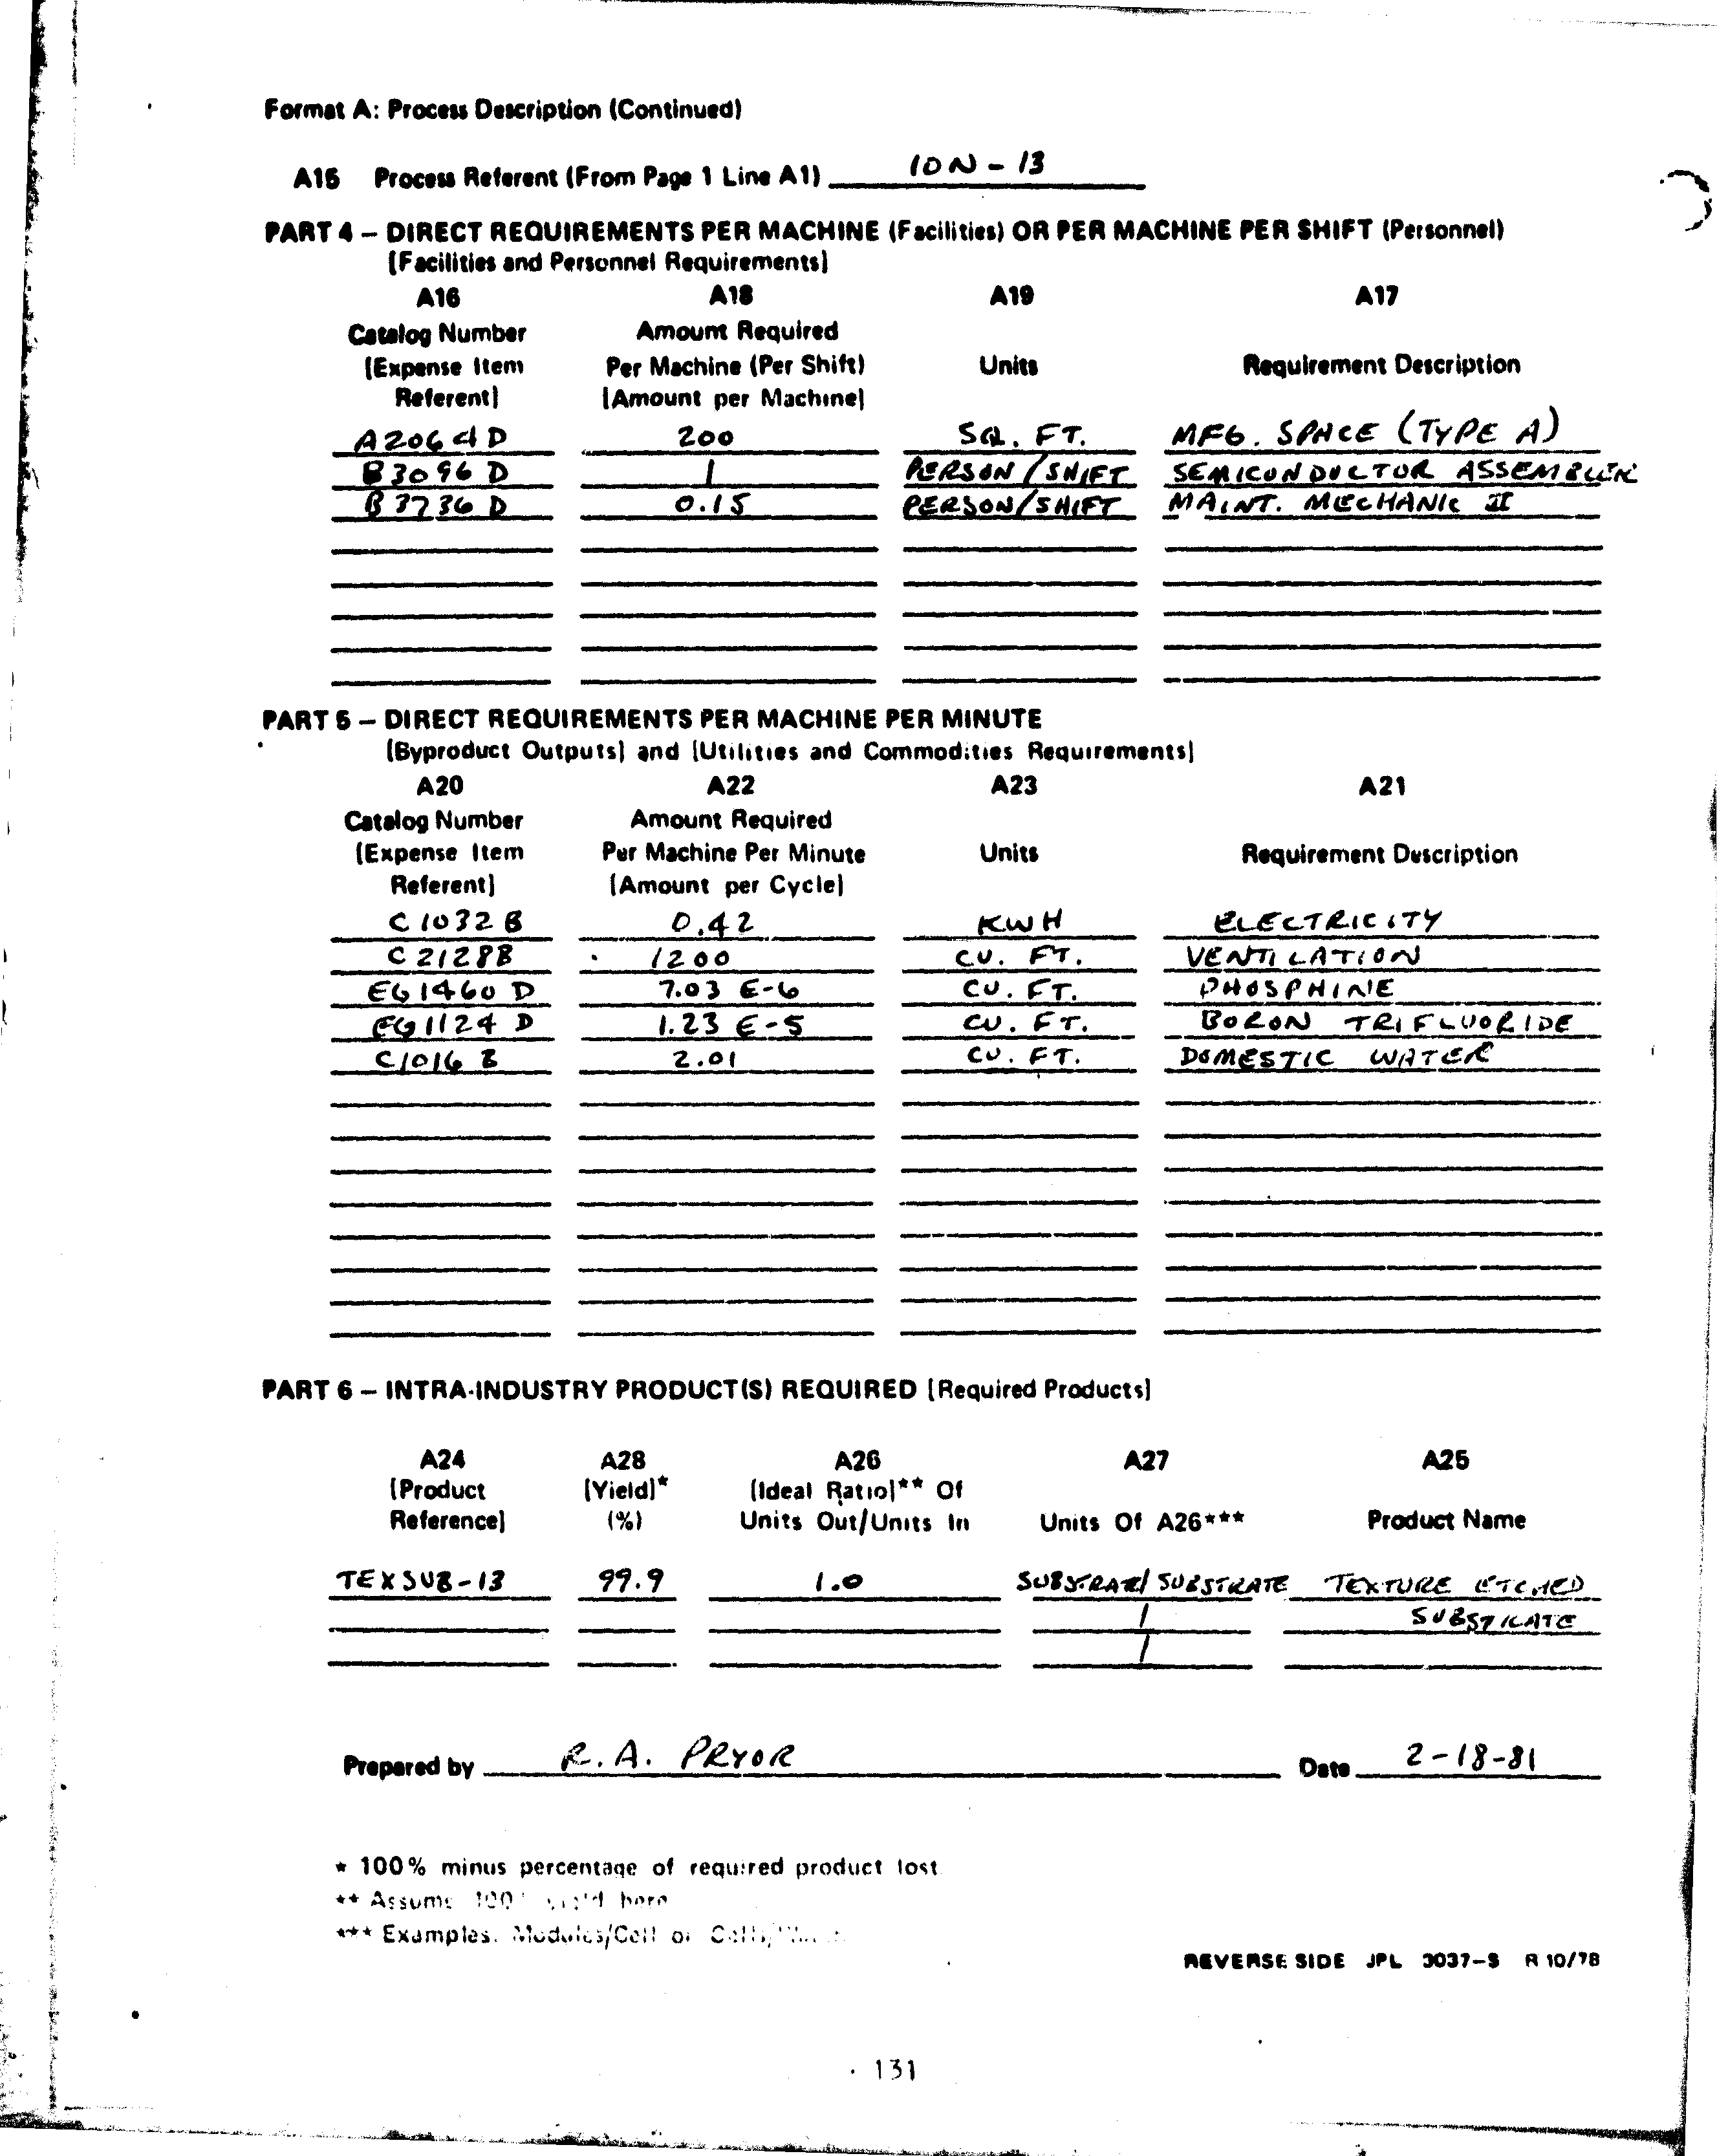 Format A: Process Description (Continued)
A15 Process Referent (From Page 1 Line A1) ION-13
PART 4 – DIRECT REQUIREMENTS PER MACHINE (Facilities) OR PER MACHINE PER SHIFT (Personnel)
[Facilities and Personnel Requirements]
A16 A18 A19 A17
Catalog Number Amount Required
[Expense Item Per Machine (Per Shift) Units Requirement Description
Referent] [Amount per Machine]
A2064D 200 SQ. FT. MFG. SPACE (TYPE A)
B3096D 1 PERSON/SHIFT SEMICONDUCTOR ASSEMBLER
B3736D 0.15 PERSON/SHIFT MAINT. MECHANIC II
PART 5 – DIRECT REQUIREMENTS PER MACHINE PER MINUTE
[Byproduct Outputs] and [Utilities and Commodities Requirements]
A20 A22 A23 A21
Catalog Number Amount Required
[Expense Item Per Machine Per Minute Units Requirement Description
Referent] [Amount per Cycle]
C1032B 0.42 KWH ELECTRICITY
C2128B 1200 CU. FT. VENTILATION
EG1460D 7.03 E-6 CU. FT. PHOSPHINE
EG1124D 1.23 E-5 CU. FT. BORON TRIFLUORIDE
C1016B 2.01 CU. FT. DOMESTIC WATER
PART 6 – INTRA-INDUSTRY PRODUCT(S) REQUIRED [Required Products]
A24 A28 A26 A27 A25
[Product [Yield]* [Ideal Ratio]** Of
Reference] (%) Units Out/Units In Units Of A26*** Product Name
TEXSUB-13 99.9 1.0 SUBSTRATE/SUBSTRATE TEXTURE ETCHED
/ SUBSTRATE
/
Prepared by R.A. PRYOR Date 2-18-81
* 100% minus percentage of required product lost
** Assume 100% yield here
*** Examples: Modules/Cell or
REVERSE SIDE JPL 3037-S R 10/78
131